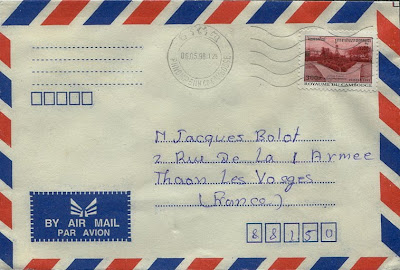 ROYAUME DU CAMBODGE
M Jacques Bolot
2 Rue De La 1 Armee
Thaon Les Vosges
(France)
88150
BY AIR MAIL
PAR AVION